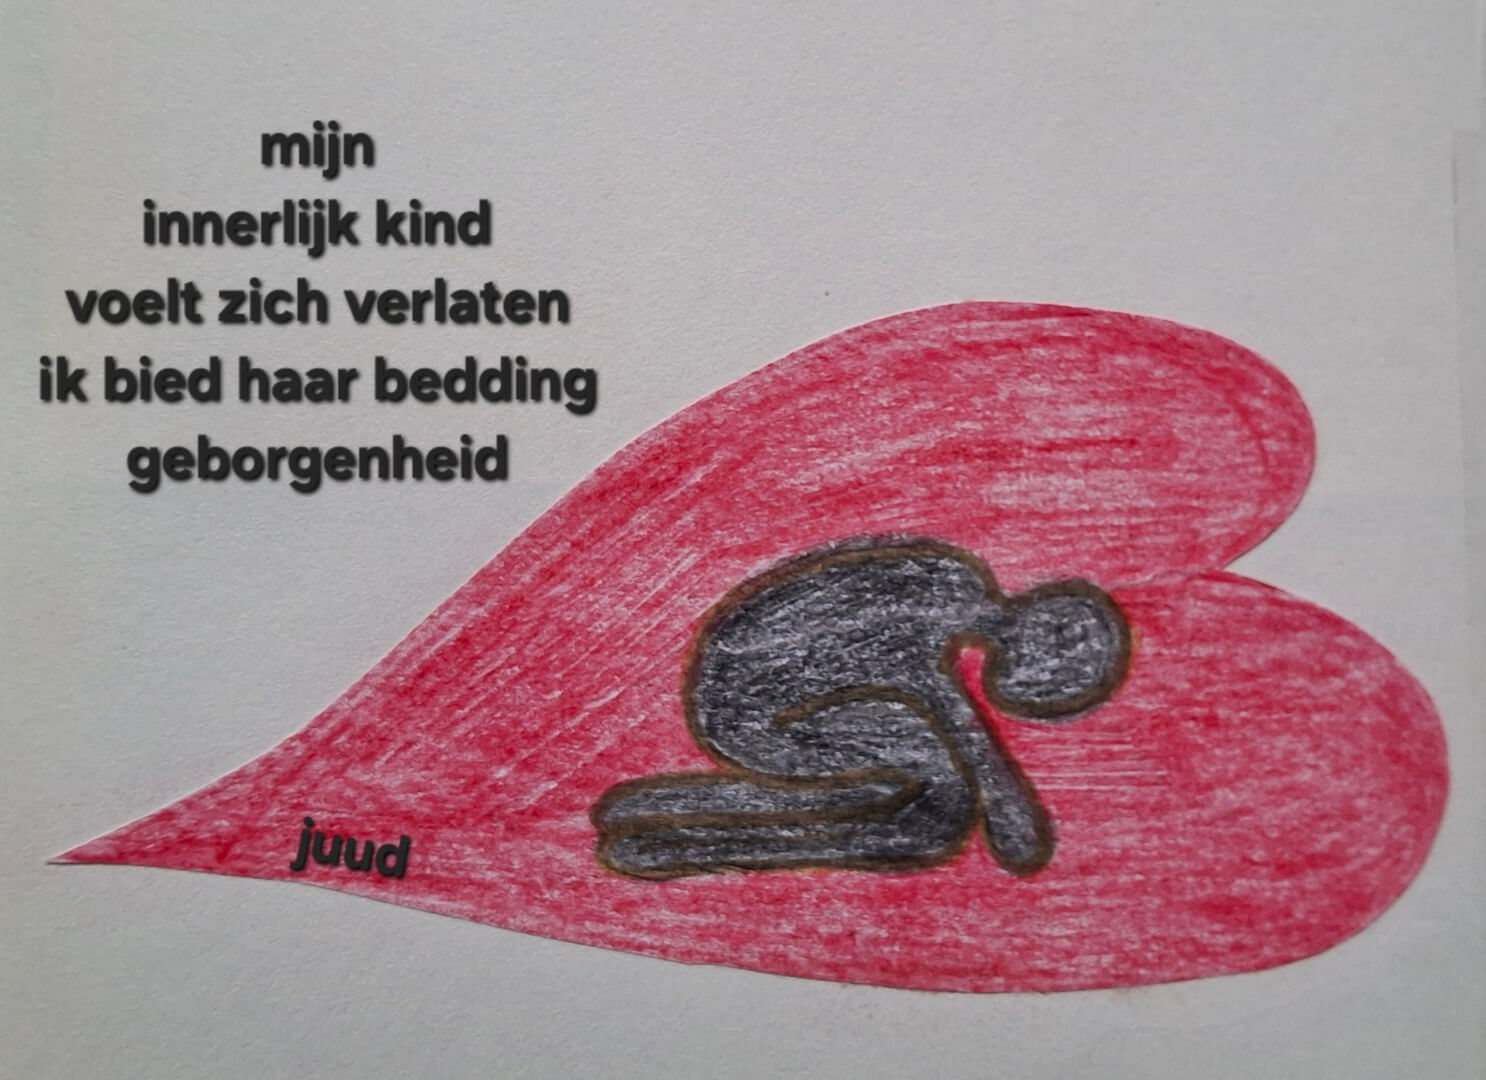 mijn
innerlijk kind
voelt zich verlaten
ik bied haar bedding
geborgenheid
juud